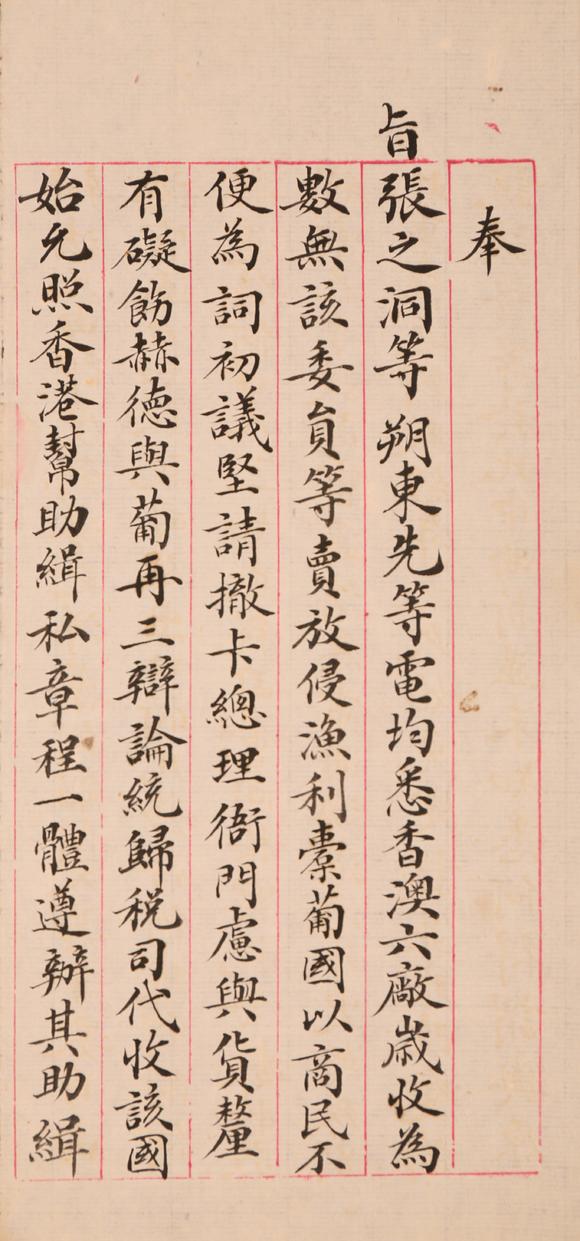 奉
旨張之洞等朔東先等電均悉香澳六廠歲收為
數無該委員等賣放侵漁利橐葡國以商民不
便為詞初議堅請撤卡總理衙門慮與貨釐
有礙飭赫德與葡再三辯論統歸税司代收該國
始允照香港幫助緝私章程一體遵辦其助緝